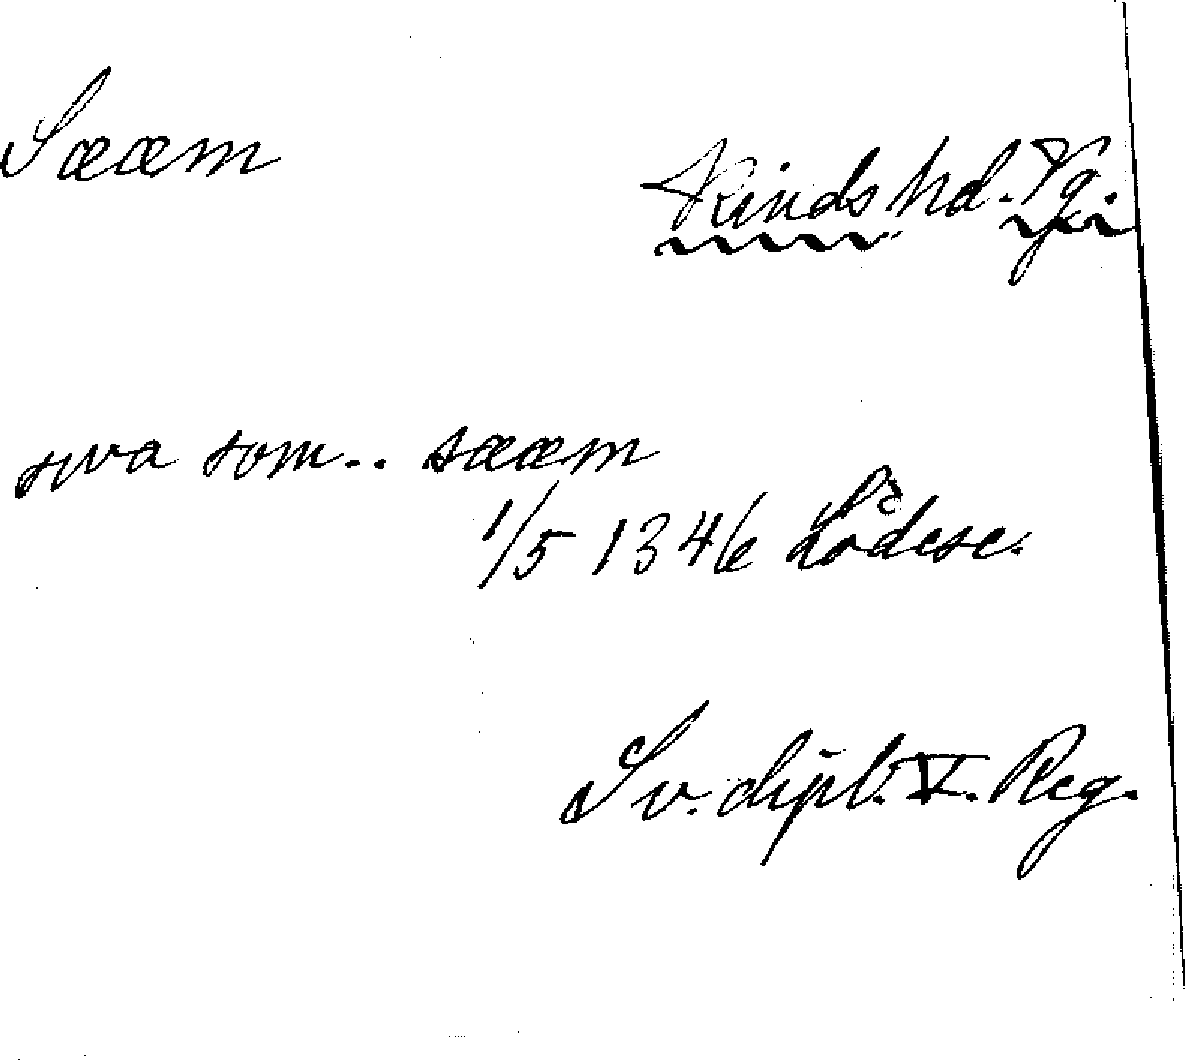 Sææm
Kinds hd. Vg.
swa som.. sææm
1/5 1346 Lödese.
Sv. dipl. V. Reg.